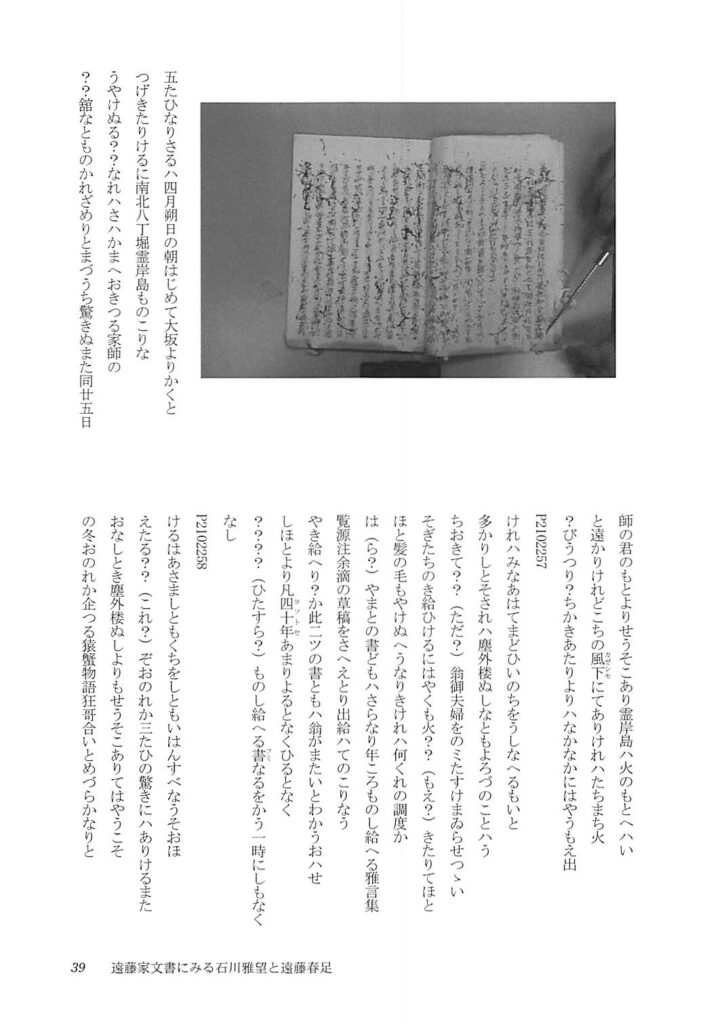 五たひなりさるハ四月朔日の朝はじめて大坂よりかくと
つげきたりけるに南北八丁堀霊岸島ものこりな
うやけぬる？？なれハさハかまへおきつる家師の
？？舘なとものかれざめりとまづうち驚きぬまた同廿五日
師の君のもとよりせうそこあり霊岸島ハ火のもとへハい
と遠かりけれどこちの風下にてありけれハたちまち火
カゼシモ
？びうつり？ちかきあたりよりハなかなかにはやうもえ出
P2102257
けれハみなあはてまどひいのちをうしなへるもいと
多かりしとそされハ塵外楼ぬしなともよろづのことハう
ちおきて？？（ただ？）翁御夫婦をのミたすけまゐらせつゝい
そぎたちのき給ひけるにはやくも火？？（もえ？）きたりてほと
ほと髪の毛もやけぬへうなりきけれハ何くれの調度か
は（ら？）やまとの書どもハさらなり年ころものし給へる雅言集
覧源注余滴の草稿をさへえとり出給ハてのこりなう
やき給へり？か此二ツの書ともハ翁がまたいとわかうおハせ
しほとより凡四十年あまりよるとなくひるとなく
ヨソトセ
？？？？（ひたすら？）ものし給へる書なるをかう一時にしもなく
フミ
なし
P2102258
けるはあさましともくちをしともいはんすべなうそおほ
えたる？？（これ？）ぞおのれか三たひの驚きにハありけるまた
おなしとき塵外楼ぬしよりもせうそこありてはやうこそ
の冬おのれか企つる猿蟹物語狂哥合いとめづらかなりと
39 遠藤家文書にみる石川雅望と遠藤春足